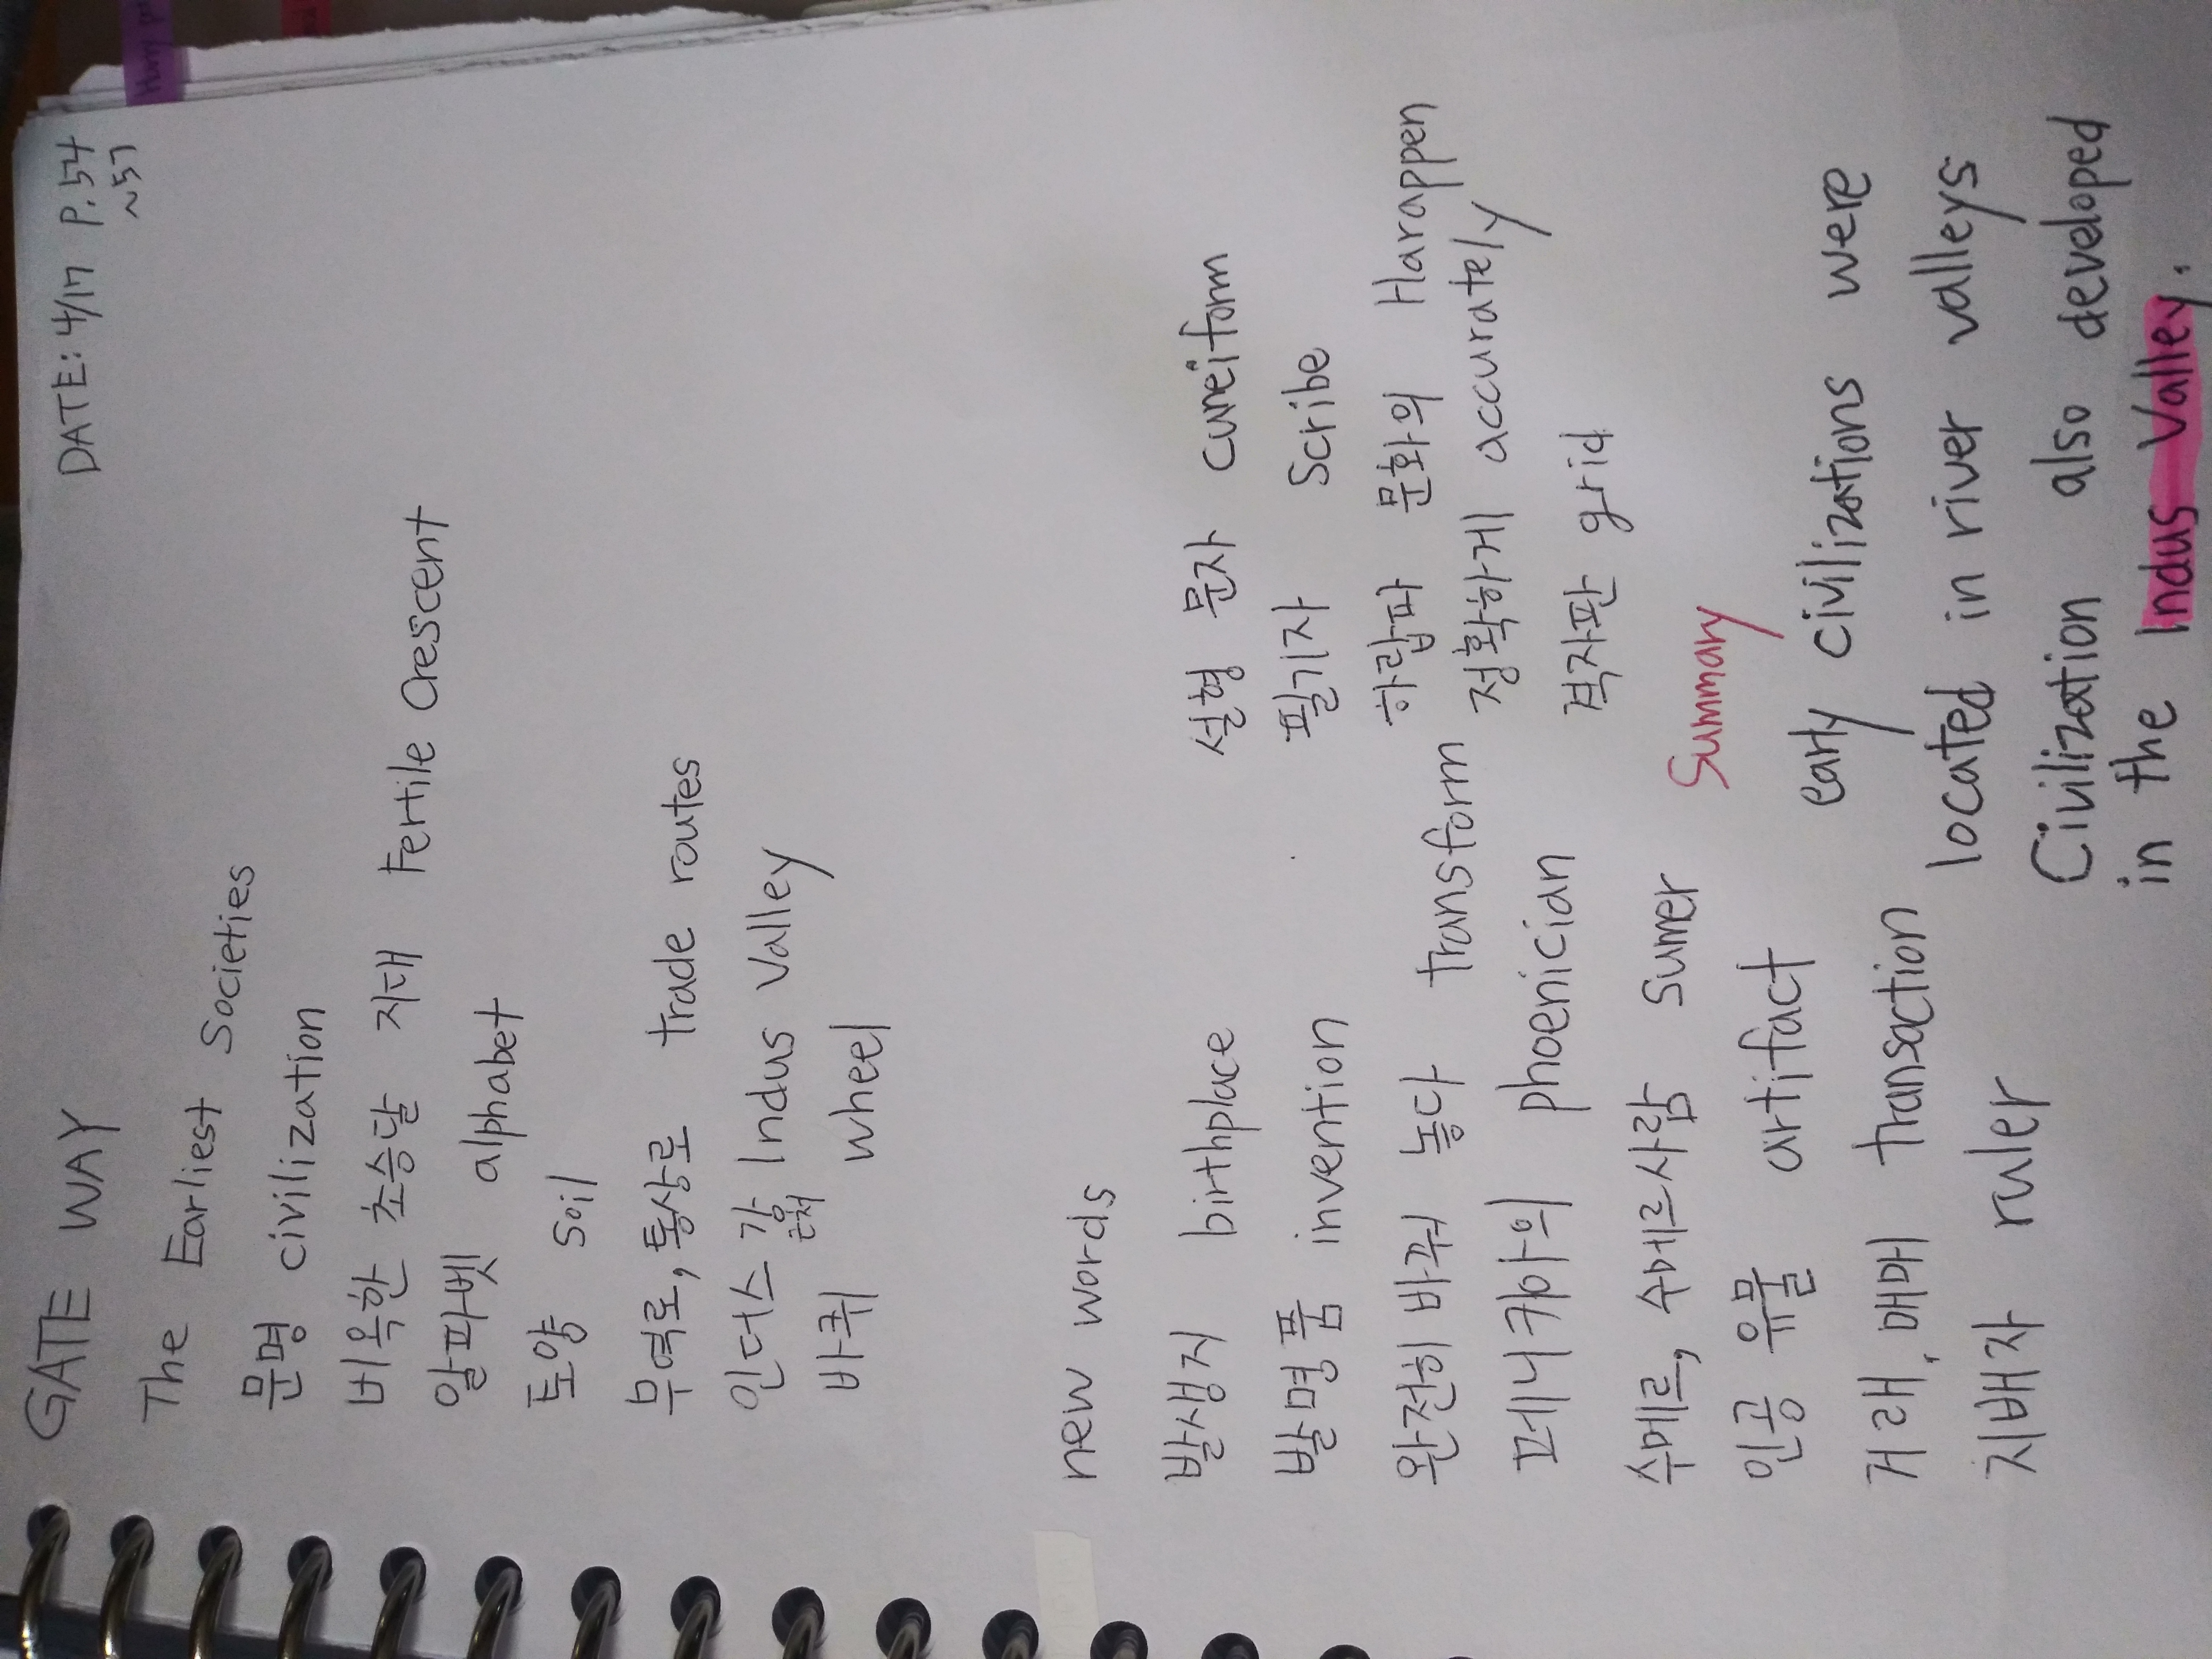 GATE WAY
DATE: 4/17 P.54
~57
The Earliest Societies
문명 civilization
비옥한 초승달 지대 Fertile Crescent
알파벳 alphabet
토양 soil
무역로, 통상로 trade routes
인더스 강 Indus Valley
바퀴 wheel
new words
발생지 birthplace
발명품 invention
완전히 바꿔 놓다 transform
페니키아의 phoenician
수메르, 수메르사람 Sumer
인공 유물 artifact
거래, 매매 transaction
지배자 ruler
설형 문자 cuneiform
필기자 Scribe
하랍파 문화의 Harappen
정확하게 accurately
격자판 grid
Summary
early civilizations were
located in river valleys
Civilization also developed
in the Indus Valley.